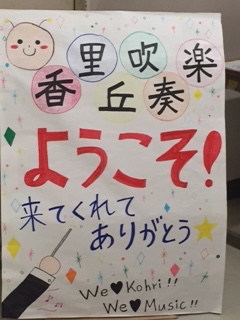 香里丘吹奏楽
ようこそ!
来てくれて
ありがとう
We♥Kohri!!
We♥Music!!